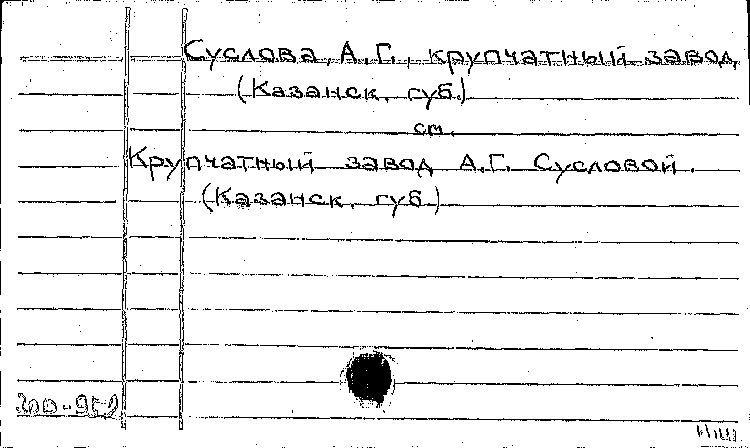 Суслова, А.Г., крупчатный завод
(Казанск. губ.)
см.
Крупчатный завод А.Г. Сусловой.
(Казанск. губ.)